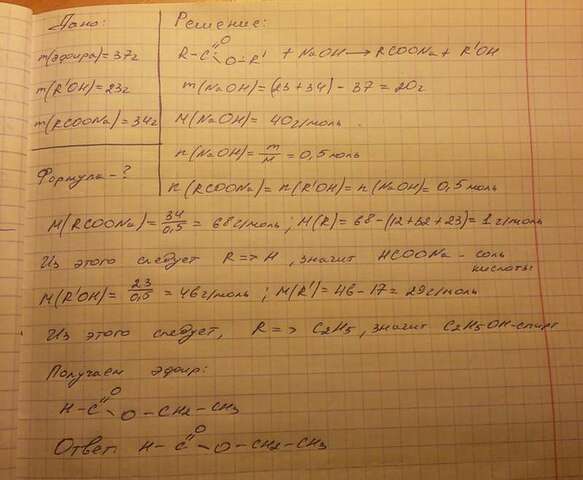 Дано:
m(эфира) = 37г
m(R'OH) = 23г
m(RCOONa) = 34г
Формула - ?
Решение:
R-C=O O-R' + NaOH → RCOONa + R'OH
m(NaOH) = (23+34) - 37 = 20г
M(NaOH) = 40г/моль
n(NaOH) = m/M = 0,5 моль
n(RCOONa) = n(R'OH) = n(NaOH) = 0,5 моль
M(RCOONa) = 34/0,5 = 68г/моль; M(R) = 68-(12+32+23) = 1г/моль
Из этого следует R => H, значит HCOONa - соль
кислоты
M(R'OH) = 23/0,5 = 46г/моль; M(R') = 46-17 = 29г/моль
Из этого следует, R => C2H5, значит C2H5OH-спирт
Получаем эфир:
H-C=O O-CH2-CH3
Ответ H-C=O O-CH2-CH3